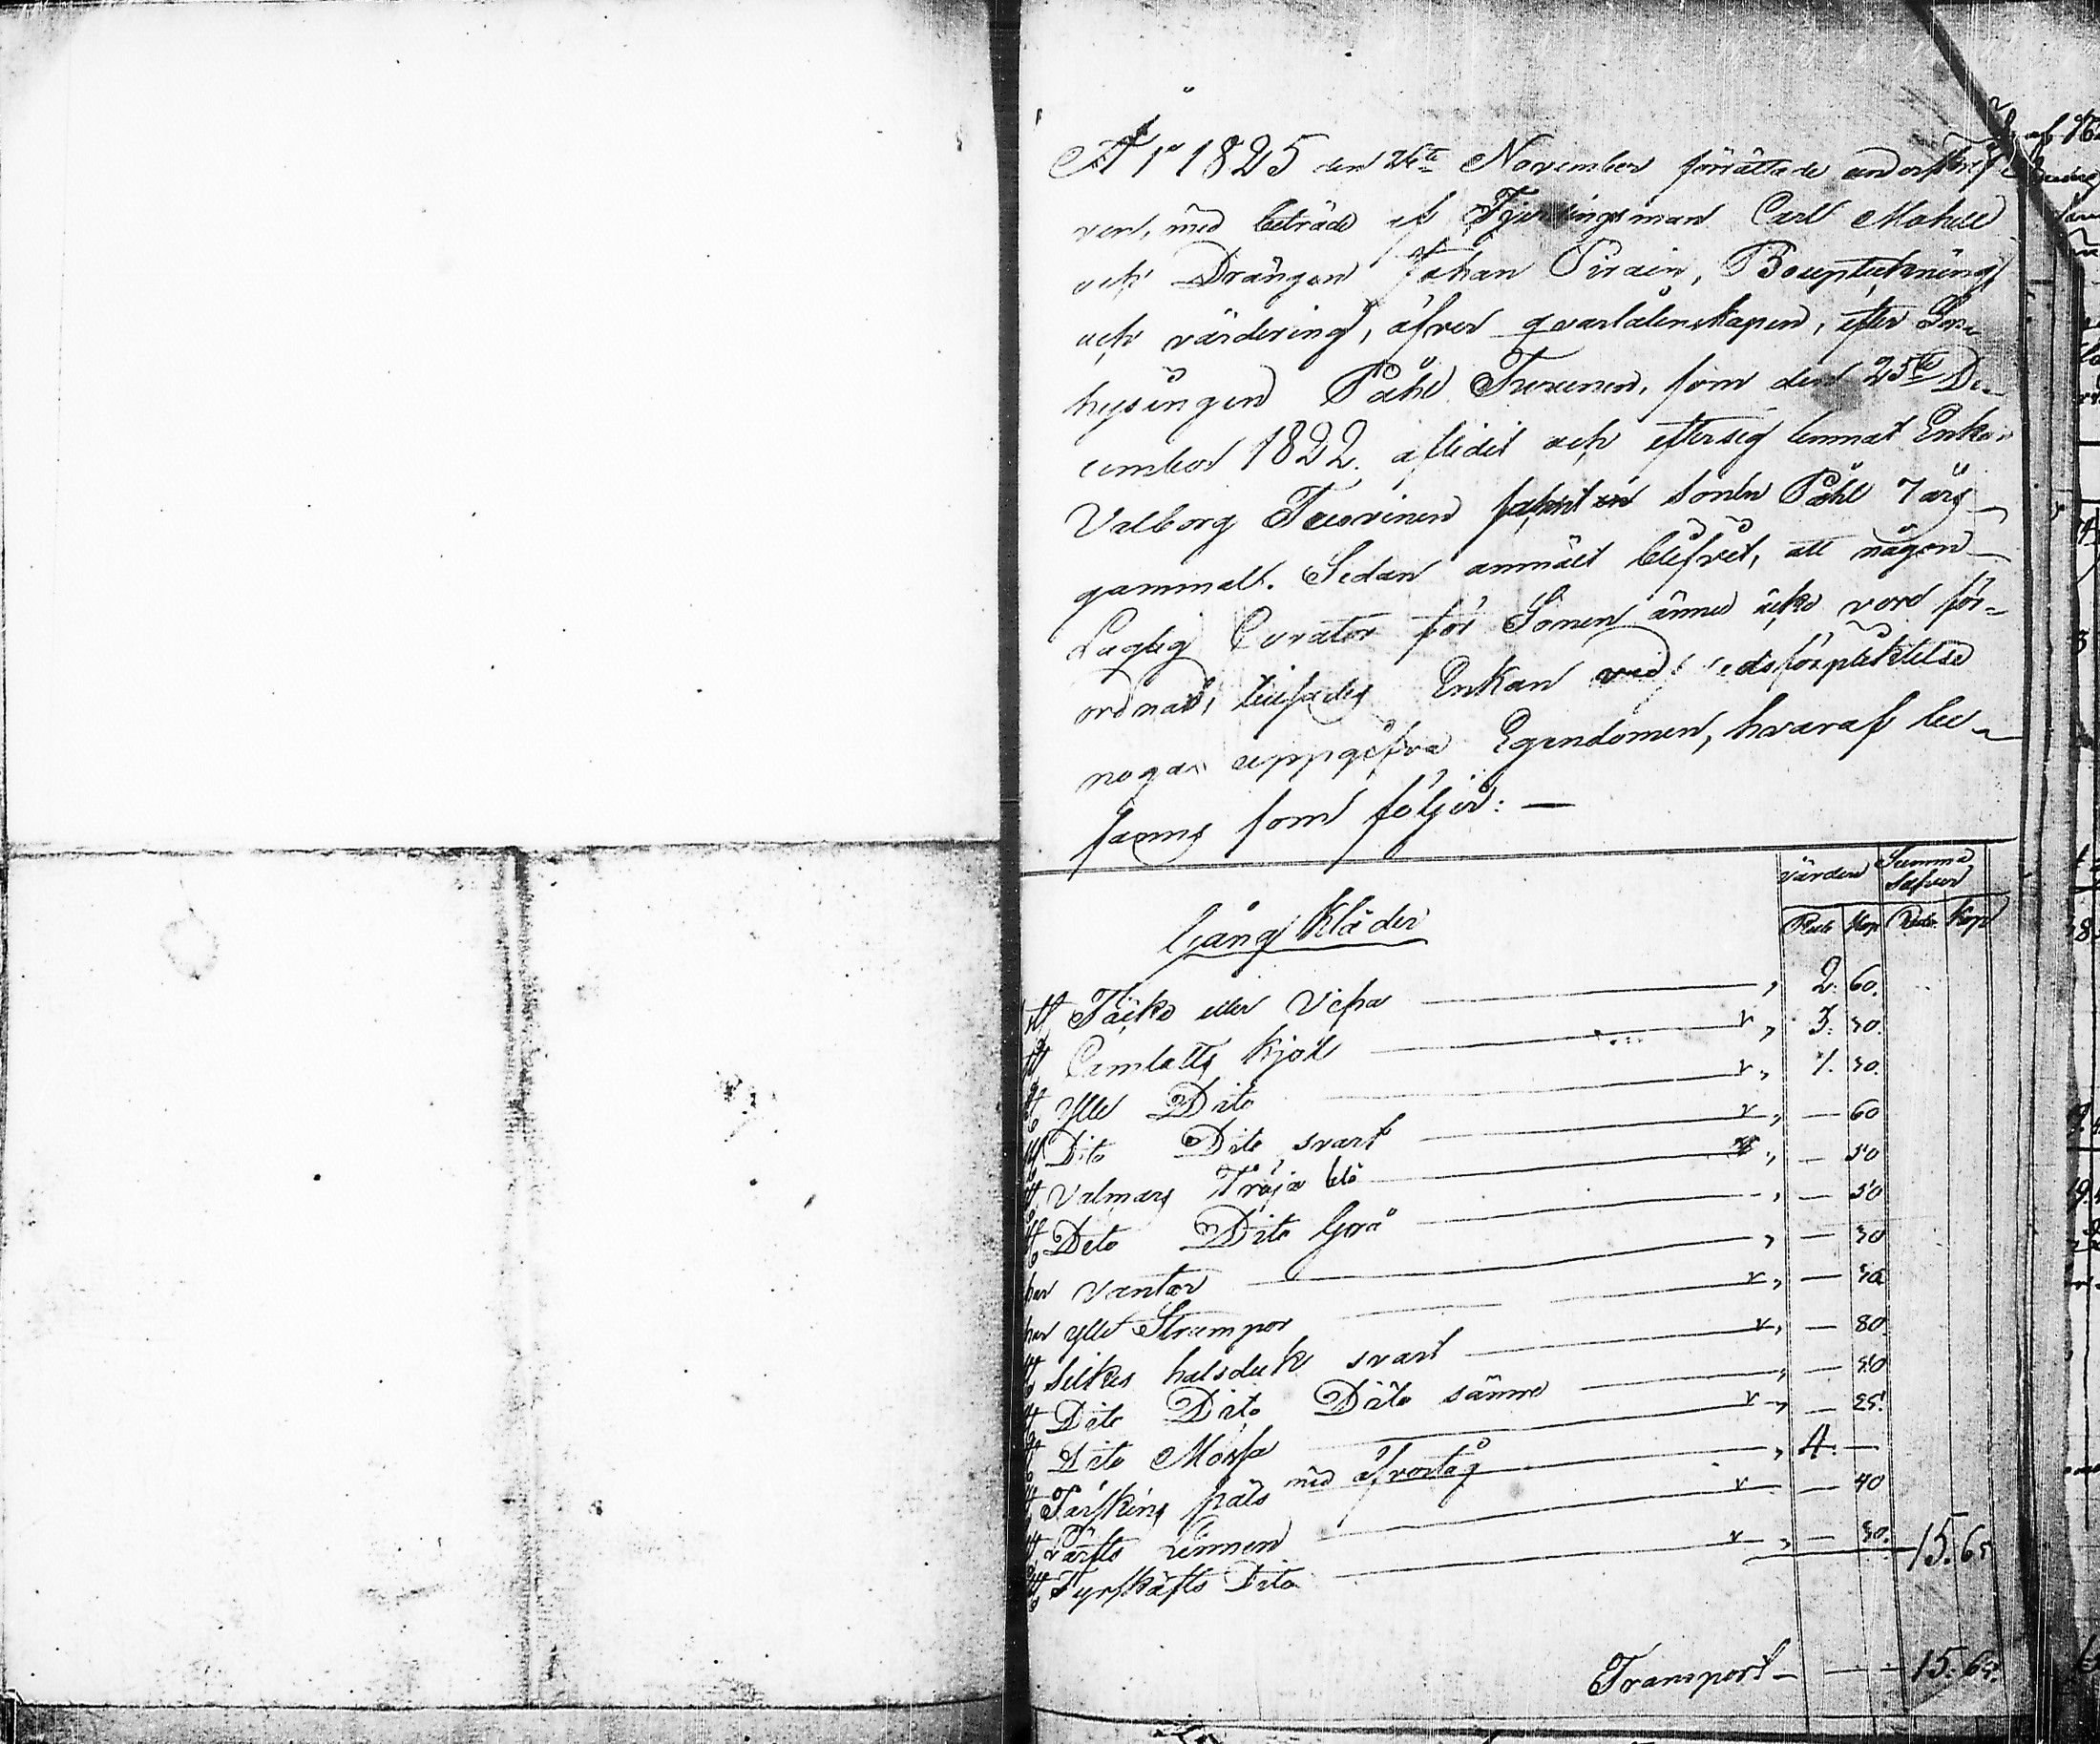 År 1825 den 26te November förrättade underskref
ven, med biträde af Fjerdingsman Carl Mohell
och Drängen Johan Pirain, Bouptekning
och värdering, öfver qvarlåtenskapen, efter In-
hysingen Påhl Tuovinen, som den 25te De-
cember 1822. aflidit och eftersig lemnat Enkan
Valborg Tuovinen samt en sonen Påhl 7 års
gammalt. Sedan anmält blifvit, att någon
Laglig Curator för Sonen ännu icke vore för-
ordnad, Enkan vid edsförpliktelse
noga uppgifva Egendomen, hvaraf be-
fanns som följer: —
värden Summa Silfver
Rub Kop Rub Kop
Gång Kläder
1 st Täcke eller Vepa — " 2. 60.
st Camlotts Kjol — v " 3. 50.
st Ylle Dito — v " 1. 50.
st Dito Dito svart — v " — 60
st Valmars Tröja blå — " — 50
st Dito Dito Grå — " — 50
par vantar — " — 30
par ylle Strumpor — v " — 50
st silkes halsduk svart — v " — 80
st Dito Dito Dito sämre — " — 50
st Dito Mössa — v " — 25.
st Fårskins päls med öfvertåg — " 4. —
st Lärfts Linnen — v — 40
st Fyrskäfts Dito — v " — 50. 15. 65
Transport — — 15. 65.